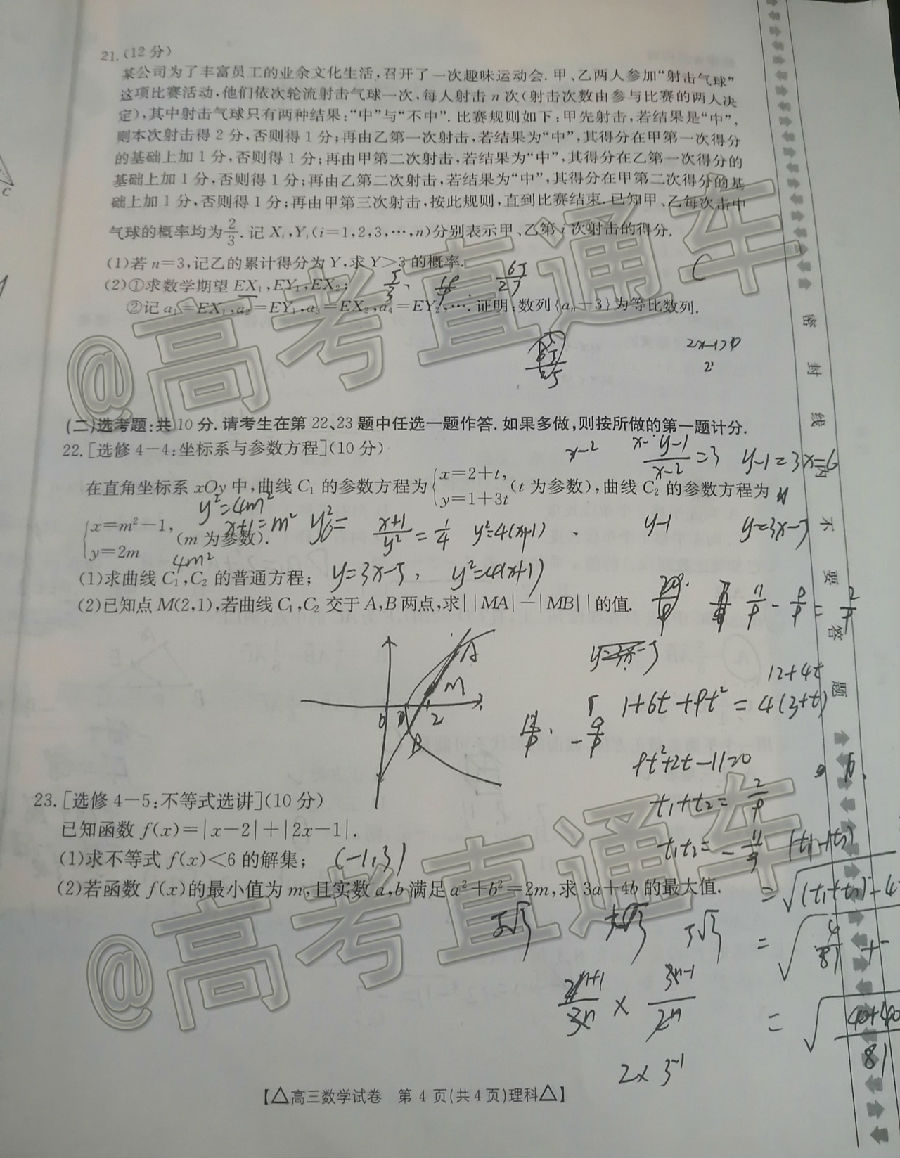 21.(12分)
某公司为了丰富员工的业余文化生活,召开了一次趣味运动会.甲、乙两人参加“射击气球”
这项比赛活动,他们依次轮流射击气球一次,每人射击n次(射击次数由参与比赛的两人决
定),其中射击气球只有两种结果:“中”与“不中”.比赛规则如下:甲先射击,若结果是“中”,
则本次射击得2分,否则得1分;再由乙第一次射击,若结果为“中”,其得分在甲第一次得分
的基础上加1分,否则得1分;再由甲第二次射击,若结果为“中”,其得分在乙第一次得分的
基础上加1分,否则得1分;再由乙第二次射击,若结果为“中”,其得分在甲第二次得分的基
础上加1分,否则得1分;再由甲第三次射击,按此规则,直到比赛结束.已知甲、乙每次击中
气球的概率均为2/3.记Xᵢ,Yᵢ(i=1,2,3,…,n)分别表示甲、乙第i次射击的得分.
(1)若n=3,记乙的累计得分为Y,求Y>3的概率.
(2)①求数学期望EX₁,EY₁,EX₂; 5/3、 19/9 65/27
②记a₁=EX₁,a₂=EY₁,a₃=EX₂,a₄=EY₂,….证明:数列{aₙ-3}为等比数列.
@高考直通车
(二)选考题:共10分.请考生在第22、23题中任选一题作答.如果多做,则按所做的第一题计分.
22.[选修4-4:坐标系与参数方程](10分)
x-2 (y-1)/(x-2)=3 y-1=3x-6
在直角坐标系xOy中,曲线C₁的参数方程为{x=2+t, y=1+3t (t为参数),曲线C₂的参数方程为
y²=4m² x+1=m² (x+1)/y²=1/4 y²=4(x+1) y-1 y=3x-5
{x=m²-1, y=2m (m为参数).
4m²
(1)求曲线C₁,C₂的普通方程; y=3x-5, y²=4(x+1)
(2)已知点M(2,1),若曲线C₁,C₂交于A,B两点,求||MA|-|MB||的值.
A
M
0
2
B
12+4t
1+6t+9t²=4(3+t)
9t²+2t-11=0
t₁+t₂=-2/9
t₁t₂=-11/9
23.[选修4-5:不等式选讲](10分)
已知函数f(x)=|x-2|+|2x-1|.
(1)求不等式f(x)<6的解集; (-1,3)
(2)若函数f(x)的最小值为m,且实数a,b满足a²+b²=2m,求3a+4b的最大值.
5√3 5√3
@高考直通车
【△高三数学试卷 第4页(共4页)理科△】
密
封
线
内
不
要
答
题